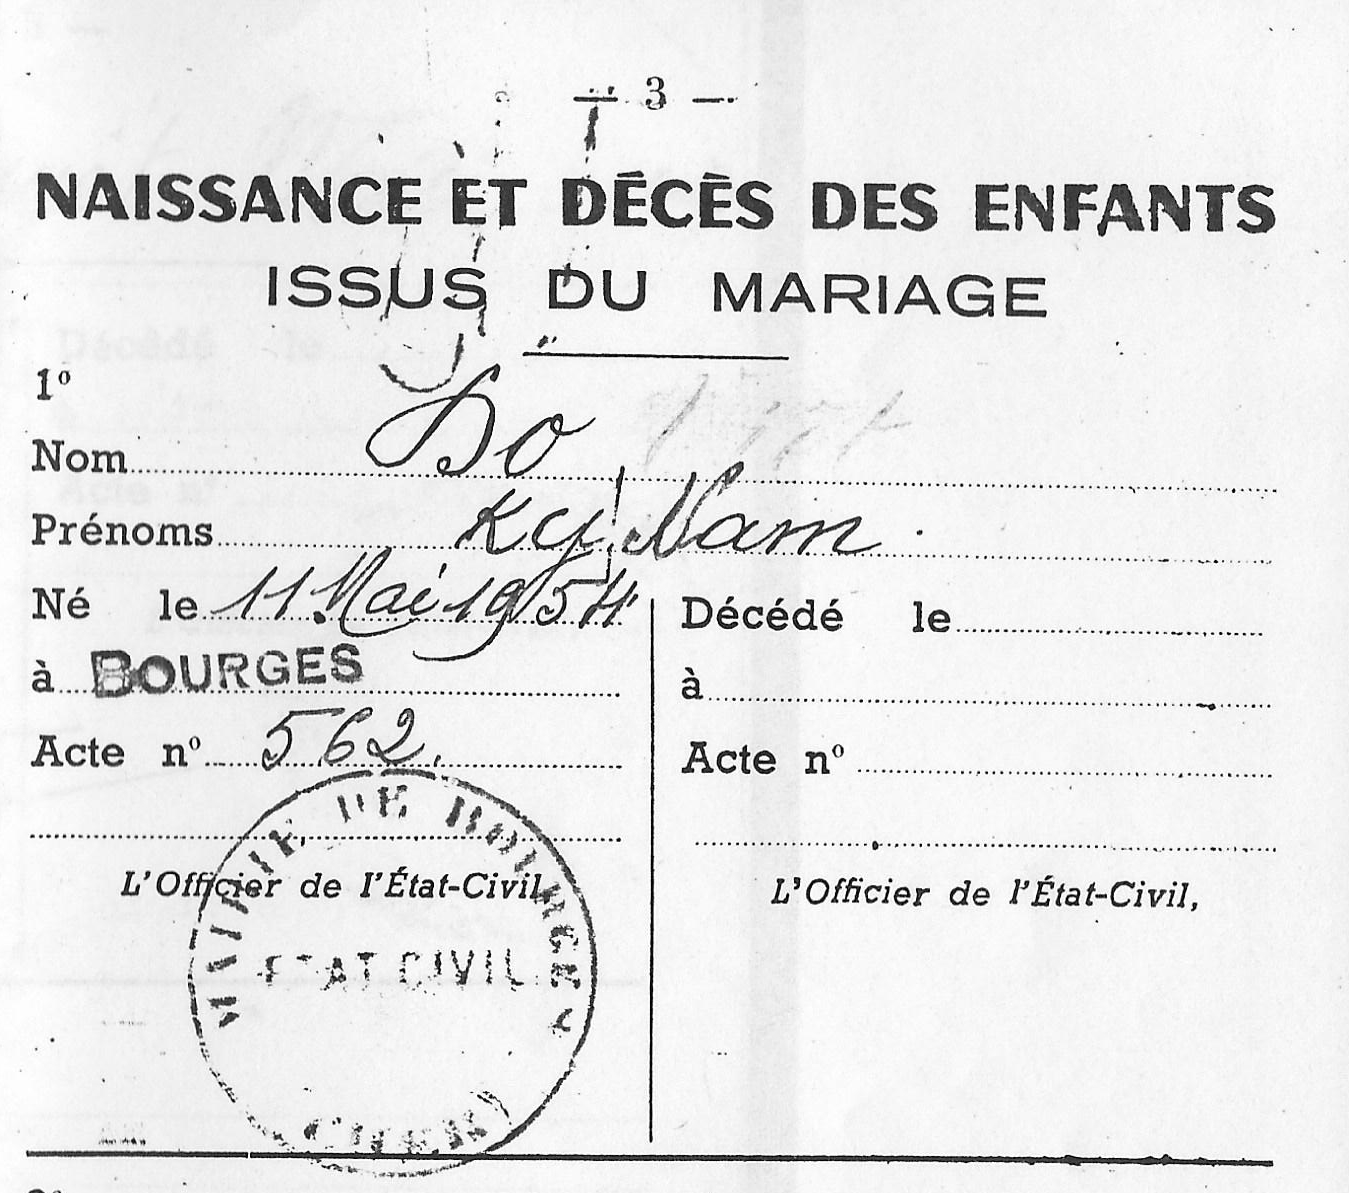 — 3 —
NAISSANCE ET DÉCÈS DES ENFANTS
ISSUS DU MARIAGE
1º
Nom Do
Prénoms Ky Nam
Né le 11 Mai 1954
à BOURGES
Acte nº 562.
L'Officier de l'État-Civil,
MAIRIE DE BOURGES
ETAT CIVIL
(CHER)
Décédé le
à
Acte nº
L'Officier de l'État-Civil,